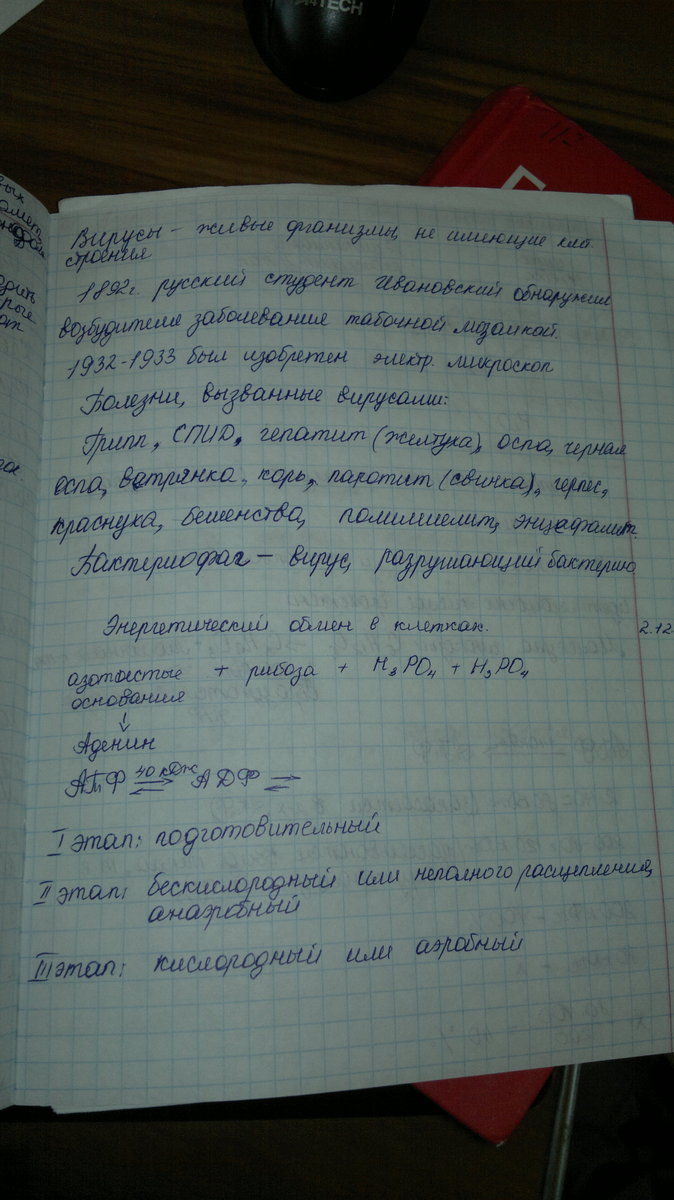 A4TECH
Вирусы – живые организмы, не имеющие клет.
строения
1892г. русский студент Ивановский обнаружил
возбудителя заболевания табочной мозаикой.
1932-1933 был изобретен электр. микроскоп
Болезни, вызванные вирусами:
Грипп, СПИД, гепатит (желтуха), оспа, черная
оспа, ветрянка, корь, паротит (свинка), герпес,
краснуха, бешенства, полимиелит, энцефалит.
Бактериофаг – вирус, разрушающий бактерию.
Энергетический обмен в клетках. 2.12
азотистые + рибоза + H₃PO₄ + H₃PO₄
основания
↓
Аденин
АТФ 40 кДж ⇄ АДФ ⇄
I этап: подготовительный
II этап: бескислородный или неполного расщепления,
анаэробный
III этап: кислородный или аэробный